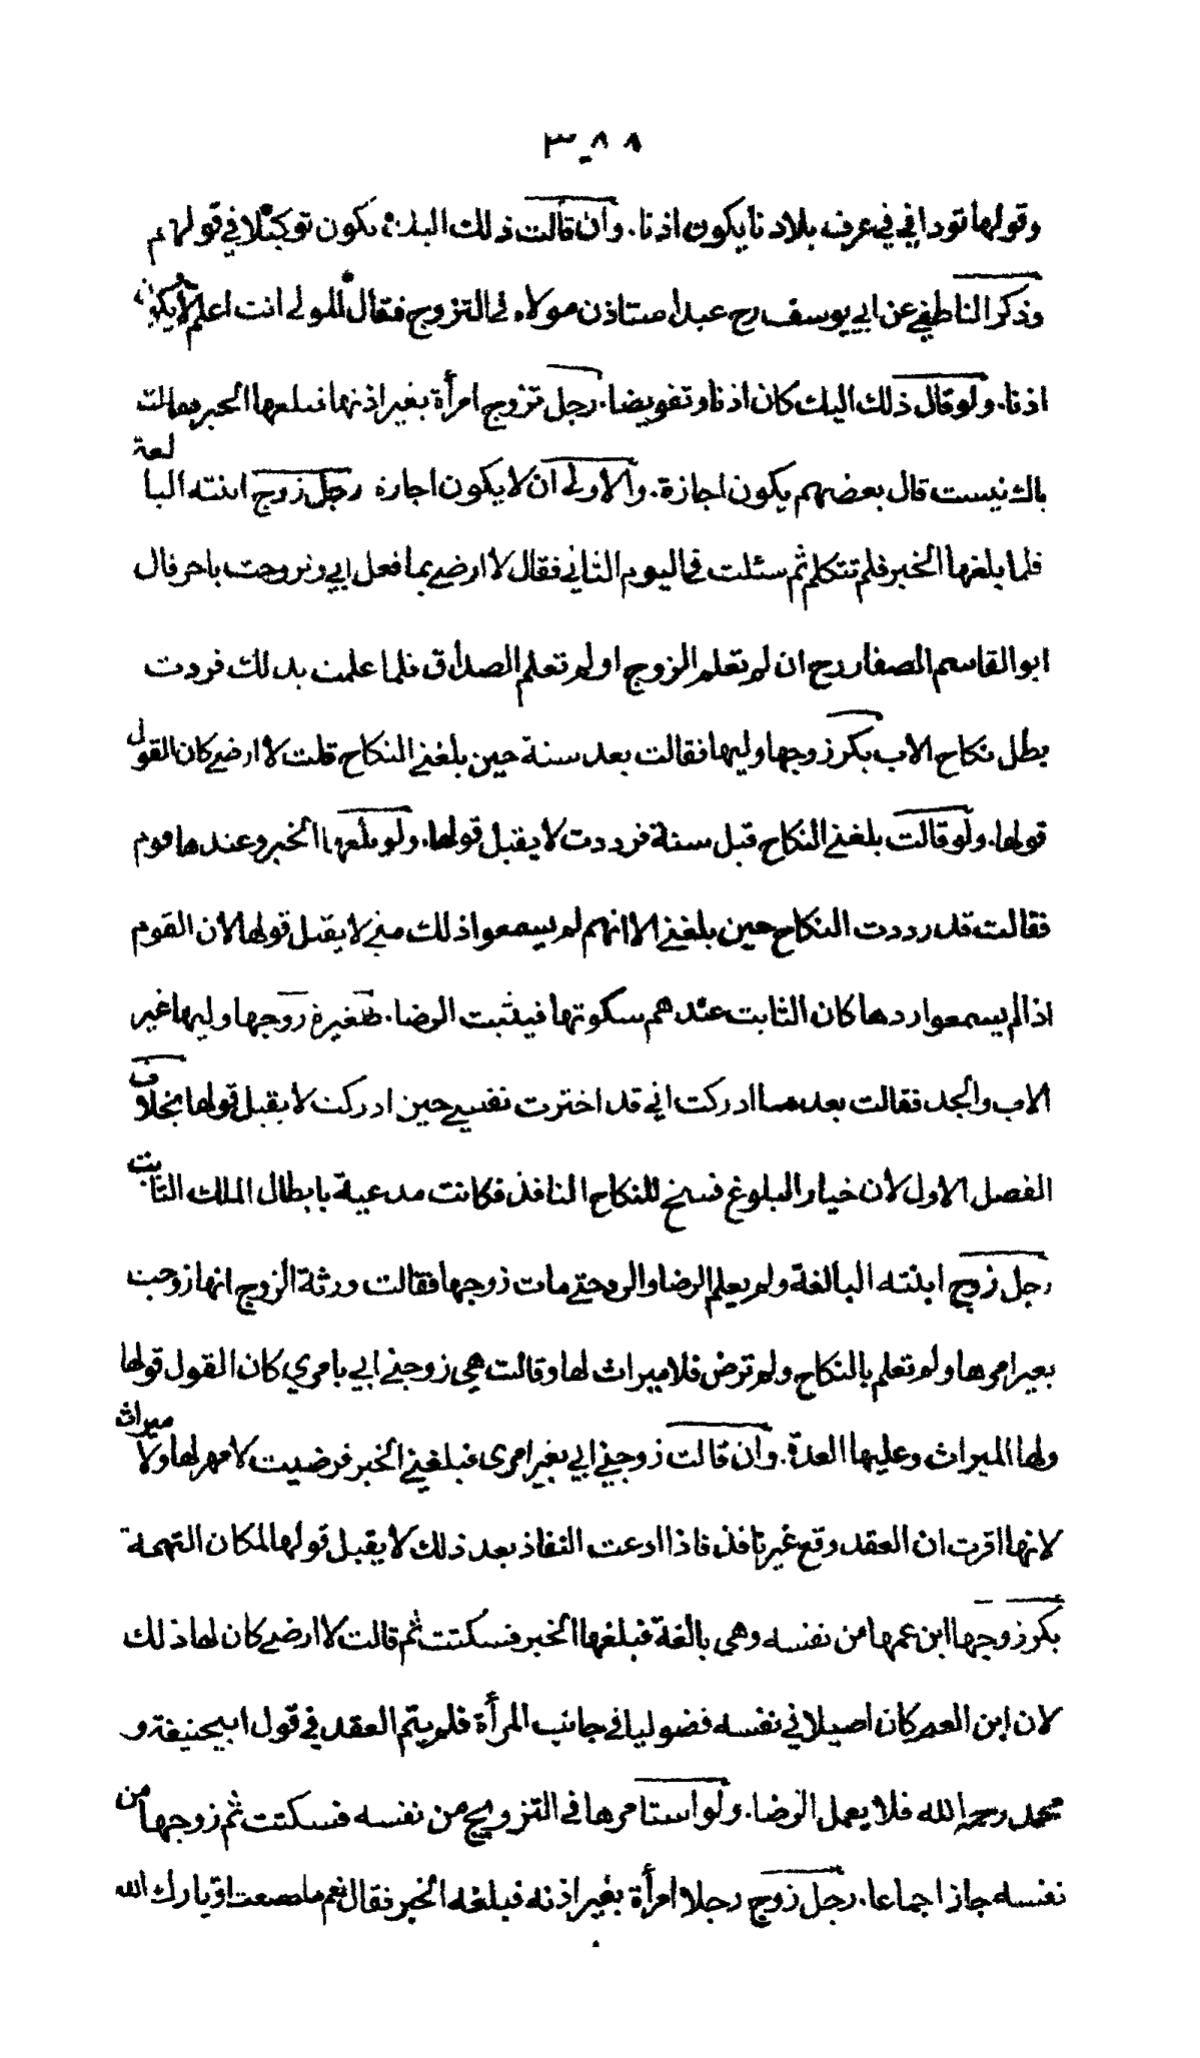 ٣٠٨٨
وقولها تودافي في عرف بلادنا يكون اذنا. وان قالت ذلك اليك يكون توكيلا في قولهم
وذكر الناطفي عن ابي يوسف رح عبد استاذن مولاه في التزوج فقال المولى انت اعلم لا يكون
اذنا. ولو قال ذلك اليك كان اذنا وتفويضا. رجل تزوج امرأة بغير اذنها فبلغها الخبر فقالت
باك نيست قال بعضهم يكون اجازة. والاولى ان لا يكون اجازة رجل زوج ابنته البالغة
فلما بلغها الخبر فلم تتكلم ثم سئلت في اليوم الثاني فقال لا ارضى بما فعل ابي وتزوجت باخر قال
ابو القاسم الصفار رح ان لم تعلم الزوج او لم تعلم الصداق فلما علمت بذلك فردت
بطل نكاح الاب بكر زوجها وليها فقالت بعد سنة حين بلغني النكاح قلت لا ارضى كان القول
قولها. ولو قالت بلغني النكاح قبل سنة فرددت لا يقبل قولها. ولو بلغها الخبر وعندها قوم
فقالت قد رددت النكاح حين بلغني الا انهم لم يسمعوا ذلك مني لا يقبل قولها لان القوم
اذا لم يسمعوا ردها كان الثابت عندهم سكوتها فيثبت الرضا. صغيرة زوجها وليها غير
الاب والجد فقالت بعد ما ادركت اني قد اخترت نفسي حين ادركت لا يقبل قولها بخلاف
الفصل الاول لان خيار البلوغ فسخ للنكاح النافذ فكانت مدعية بابطال الملك الثابت
رجل زوج ابنته البالغة ولم يعلم الرضا والرد حتى مات زوجها فقالت ورثة الزوج انها زوجت
بغير امرها ولم تعلم بالنكاح ولم ترض فلا ميراث لها وقالت هي زوجني ابي بامري كان القول قولها
ولها الميراث وعليها العدة. وان قالت زوجني ابي بغير امري فبلغني الخبر فرضيت لا مهر لها ولا ميراث
لانها اقرت ان العقد وقع غير نافذ فاذا ادعت النفاذ بعد ذلك لا يقبل قولها لمكان التهمة
بكر زوجها ابن عمها من نفسه وهي بالغة فبلغها الخبر فسكتت ثم قالت لا ارضى كان لها ذلك
لان ابن العم كان اصيلا في نفسه فضوليا في جانب المرأة فلم يتم العقد في قول ابيحنيفة و
محمد رحمه الله فلا يعمل الرضا. ولو استامرها في التزويج من نفسه فسكتت ثم زوجها من
نفسه جاز اجماعا. رجل زوج رجلا امرأة بغير اذنه فبلغه الخبر فقال نعم ما صنعت او بارك الله